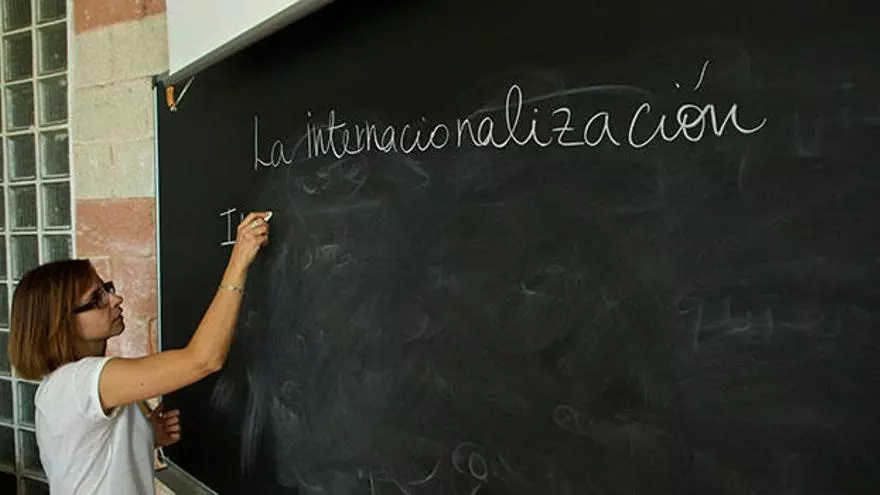 La internacionalización